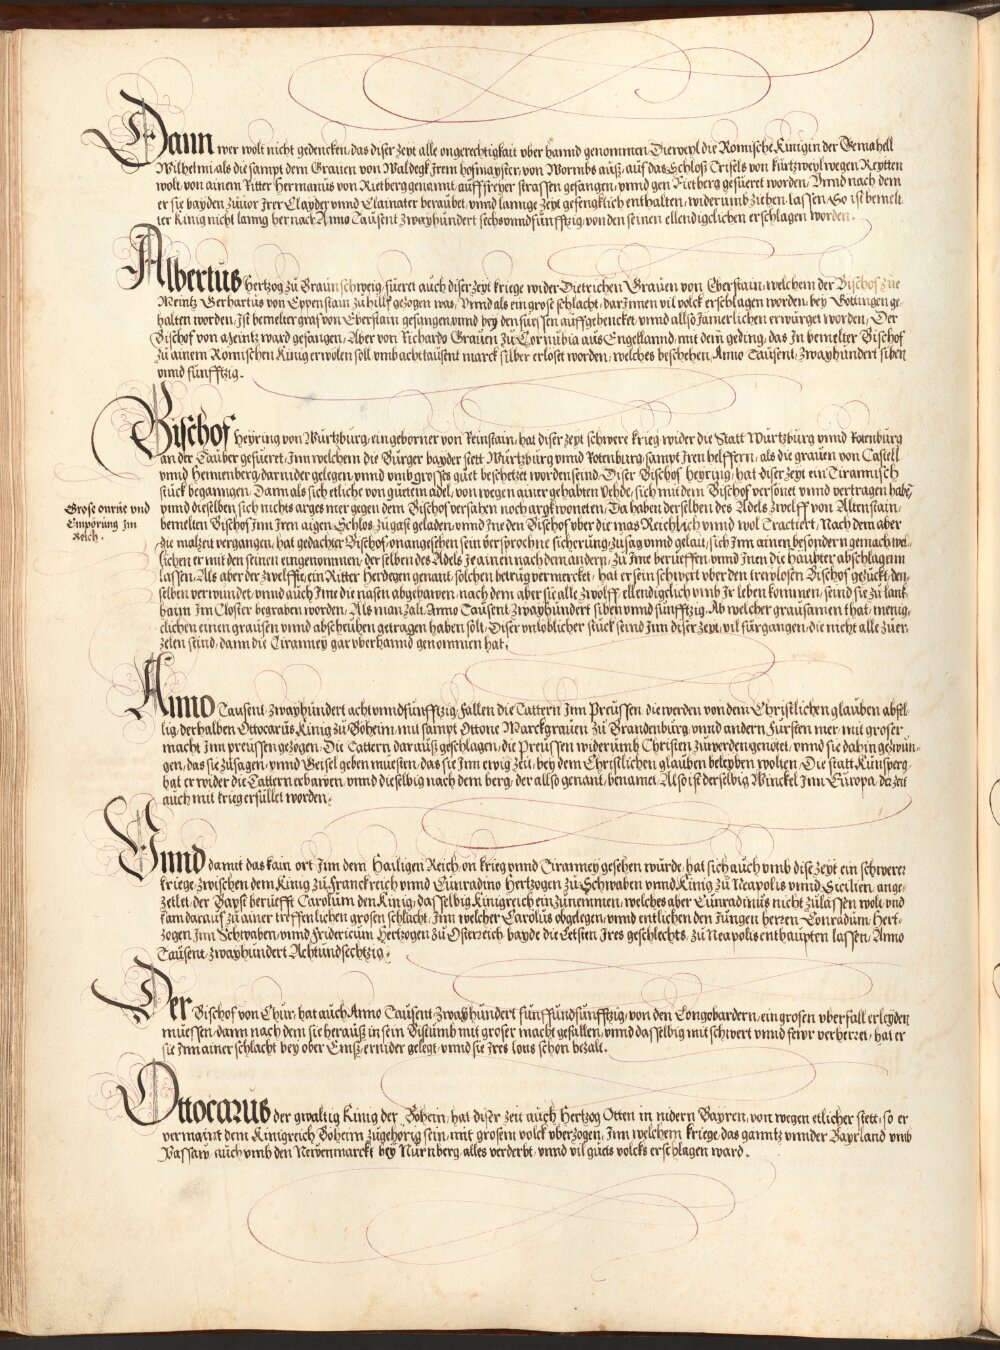 Dann wer wolt nicht gedencken, das diser Zeyt alle ongerechtigkait vber hannd genommen, Dieweyl die Römische Künigin der Gemahell
Wilhelmi, als die sampt dem Grauen von Waldegk Irem hofmayster, von Wormbs auß, auf das Schloß Trifels von kürtzweyl wegen Reytten
wolt, von ainem Ritter Hermanus von Rietberg genannt, auff freyer strassen gefangen, vnnd gen Rietberg gefüeret worden, Vnnd nach dem
er sie bayden zuuor Irer Clayder vnnd Clainater beraubet, vnnd lannge Zeyt gefengklich enthalten, widerumb ziehen lassen, So ist bemelt
ter Künig nicht lanng hernach Anno Tausent Zwayhundert sechsvnndfünfftzig, von den seinen ellendigclichen erschlagen worden.
Albertus Hertzog zu Braunschweig, füeret auch diser Zeyt kriege wider Dietrichen Grauen von Eberstain, welchem der Bischof zue
Meintz Gerhartus von Eppenstain zu hilff gezogen was, Vnnd als ein grose schlacht, darInnen vil volck erschlagen worden, bey Göttingen ge-
halten worden, Ist bemelter graf von Eberstain gefangen, vnnd bey den füessen auffgehencket, vnnd allso Jämerlichen erwürget worden, Der
Bischof von Meintz ward gefangen, Aber von Richardo Grauen zu Cornubia aus Engellannd, mit dem geding, das In bemelter Bischof
zu ainem Römischen Künig erwölen soll vmb achttausent marck silber erlöst worden, welches beschehen, Anno Tausent, Zwayhundert siben
vnnd fünfftzig.
Bischof Heyring von Würtzburg, ein geborner von Reinstain, hat diser zeyt schwere krieg wider die Statt Würtzburg vnnd Rotenburg
an der Tauber gefüeret, Inn welchem die Bürger bayder stett Würtzburg vnnd Rotenburg, sampt Iren helffern, als die grauen von Castell
vnnd Hennenberg, darnider gelegen, vnnd vmb grosses guet beschetzet worden seind, Diser Bischof Heyring, hat diser zeyt ein Tirannisch
stück beganngen, Dann als sich etliche von guettem adel, von wegen ainer gehabten Vehde, sich mit dem Bischof versönet vnnd vertragen habe,
Grose onrue vnd
Empörung Im
Reich.
vnnd dieselben sich nichts arges mer gegen dem Bischof versahen noch argkwoneten, Da haben derselben des Adels zwelff von Altenstain,
bemelten Bischof Inn Iren aigen Schlos zu gast geladen, vnnd Ine den Bischof vber die mas Reichlich vnnd wol Tractiert, Nach dem aber
die malzeit vergangen, hat gedachter Bischof, onangesehen sein versprochne sicherung, zusag vnnd gelait, sich Inn ainen besondern gemach wel-
lichen er mit den seinen eingenommen, derselben des Adels Je ainen nach dem andern, zu Ime berueffen, vnnd Inen die häupter abschlagenn
lassen, Als aber der zwelffte, ein Ritter Herdegen genant, solchen betrug vermercket, hat er sein schwert vber den trewlosen Bischof gezückt, den-
selben verwundet, vnnd auch Ime die nasen abgehawen, nach dem aber sie alle zwölff ellendigelich vmb Ir leben kommen, seind sie zu lank
haim Im Closter begraben worden, Als man zalt Anno Tausent Zwayhundert siben vnnd fünfftzig, Ab welcher grausamen that, menig-
clichen einen grausen vnnd abscheuhen getragen haben solt, Diser vnloblicher stück seind Inn diser Zeyt, vil fürgangen, die nicht alle zuer-
zelen sind, dann die Tiranney gar vberhannd genommen hat.
Anno Tausent Zwayhundert acht vnndfünfftzig, Fallen die Tattern Inn Preussen, die werden von dem Christlichen glauben abfel-
lig, derhalben Ottocarus Künig zu Böheim, mit sampt Ottone Marckgrauen zu Brandenburg, vnnd andern Fürsten mer, mit groser
macht Inn preussen gezogen, Die Tattern darauß geschlagen, die Preussen widerumb Christen zuwerden genötet, vnnd sie dahin gezwun-
gen, das sie zusagen, vnnd Geisel geben müesten, das sie Inn ewig Zeit, bey dem Christlichen glauben beleyben wolten, Die statt Künsperg
hat er wider die Tattern erbawen, vnnd dieselbig nach dem berg, der allso genant, benamet, Also ist derselbig Winckel Inn Europa, der zeit
auch mit krieg erfüllet worden.
Vnnd damit das kain ort Inn dem Hailigen Reich, on krieg vnnd Tiranney gesehen wurde, hat sich auch vmb dise Zeyt ein schwerer
kriege, zwischen dem Künig zu Franckreich vnnd Cunradino Hertzogen zu Schwaben vnnd Künig zu Neapolis vnnd Sicilien, ange-
zettlet, der Bapst beruefft Carolum den Künig, dasselbig Künigreich einzunemmen, welches aber Cunradinus nicht zulassen wolt, vnd
kam darauf zu ainer treffenlichen grosen schlacht, Inn welcher Carolus obgelegen, vnnd entlichen den Jungen herren Conradum Hert-
zogen Inn Schwaben, vnnd Fridericum Hertzogen zu Osterreich bayde die Letsten Ires geschlechts, zu Neapolis enthaupten lassen, Anno
Tausent zwayhundert Achtundsechtzig.
Der Bischof von Chur, hat auch Anno Tausent Zwayhundert fünffundfünfftzig, von den Longobardern, ein grosen vberfall erleyden
müessen, dann nach dem sie herauß in sein Bistumb mit groser macht gefallen, vnnd dasselbig mit schwert vnnd fewr verherret, hat er
sie Inn ainer schlacht bey ober Emß, ernider gelegt, vnnd sie Ires lons schon bezalt.
Ottocarus der gwaltig Künig der Böhem, hat diser Zeit auch Hertzog Otten in nidern Bayren, von wegen etlicher stett, so er
vermaint dem Künigreich Böheim zugehörig sein, mit grosem volck vberzogen, Inn welchem kriege, das ganntz vnnder Bayrland vmb
Bassaw, auch vmb den Newenmarckt bey Nürnberg, alles verderbt, vnnd vil guets volcks erschlagen ward.